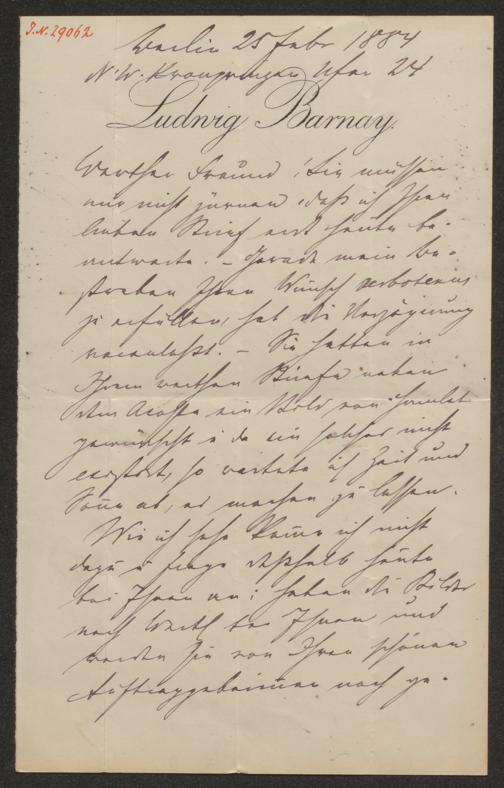 J.N. 29062
Berlin 25 Febr 1884
N. W. Kronprinzen Ufer 24
Ludwig Barnay.
Werther Freund! Sie müssen
mir nicht zürnen, daß ich Ihren
lieben Brief erst heute be-
antworte. – Gerade mein Be-
streben Ihren Wunsch verbotenus
zu erfüllen, hat die Verzögerung
veranlaßt. – Sie hatten in
Ihrem werthen Briefe neben
dem Acosta ein Bild von Hamlet
gewünscht u da ein solches nicht
existirt, so wartete ich Zeit und
Sonne ab, es machen zu lassen.
Wie ich sehe komme ich nicht
dazu u frage deßhalb heute
bei Ihnen an: haben die Bilder
noch Werth bei Ihnen und
werden sie von Ihren schönen
Auftraggeberinnen noch ge-